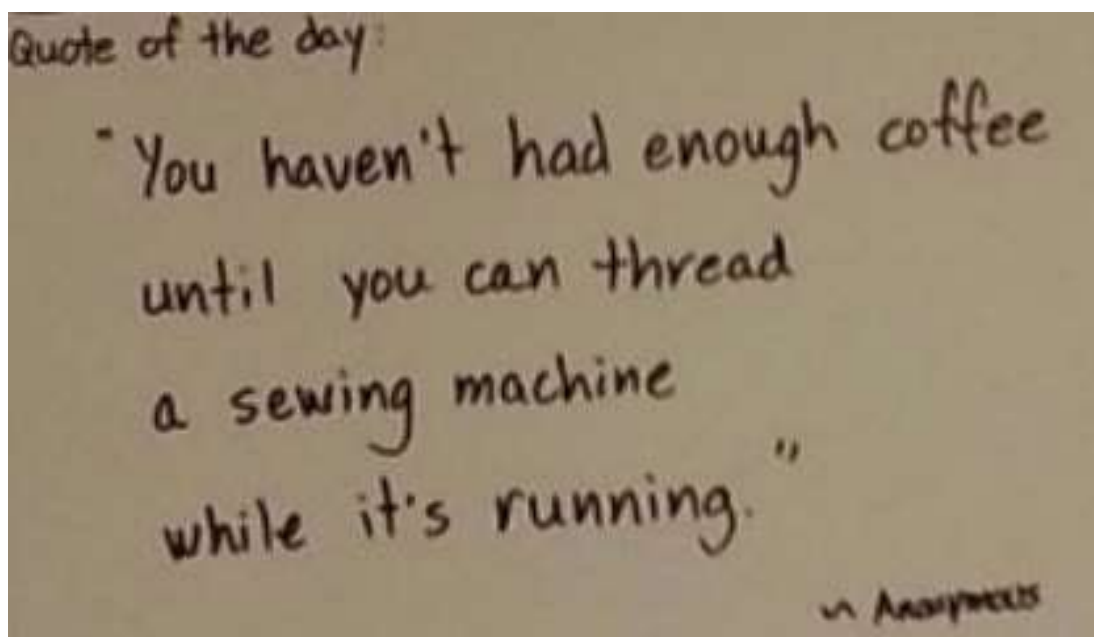 Quote of the day:
"You haven't had enough coffee
until you can thread
a sewing machine
while it's running."
~ Anonymous